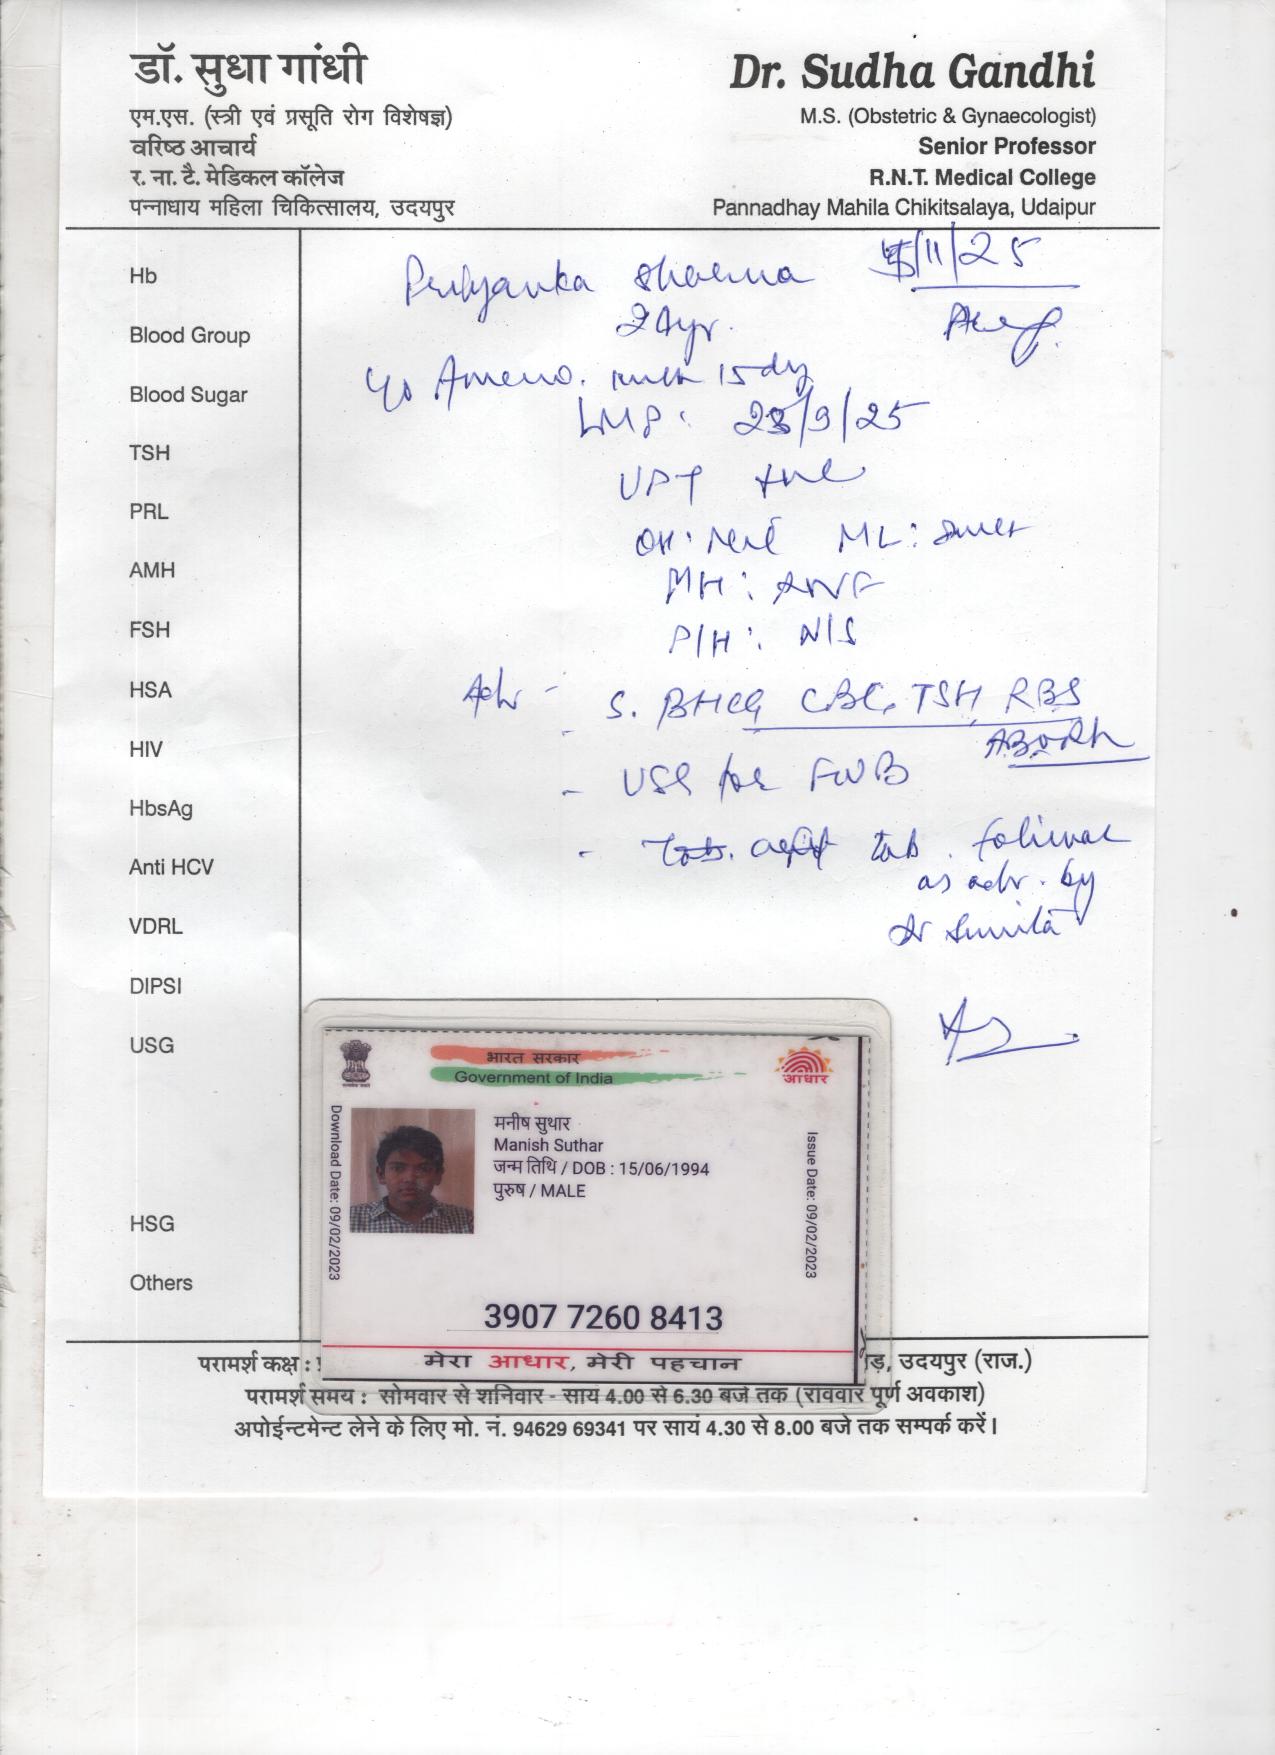 डॉ. सुधा गांधी
एम.एस. (स्त्री एवं प्रसूति रोग विशेषज्ञ)
वरिष्ठ आचार्य
र. ना. टै. मेडिकल कॉलेज
पन्नाधाय महिला चिकित्सालय, उदयपुर
Dr. Sudha Gandhi
M.S. (Obstetric & Gynaecologist)
Senior Professor
R.N.T. Medical College
Pannadhay Mahila Chikitsalaya, Udaipur
Hb
Blood Group
Blood Sugar
TSH
PRL
AMH
FSH
HSA
HIV
HbsAg
Anti HCV
VDRL
DIPSI
USG
HSG
Others
Priyanka Sharma 5/11/25
yr.
Ameno. 15 day
LMP: /9/25
UPT +ve
OH: ML:
MH:
P/H: N/S
Adv - S. BHCG CBC, TSH RBS
ABORh
- USG for FWB
- Tab.
as adv. by
Dr Sunita
भारत सरकार
Government of India
आधार
Download Date: 09/02/2023
मनीष सुथार
Manish Suthar
जन्म तिथि / DOB : 15/06/1994
पुरुष / MALE
Issue Date: 09/02/2023
3907 7260 8413
मेरा आधार, मेरी पहचान
परामर्श कक्ष : उदयपुर (राज.)
परामर्श समय : सोमवार से शनिवार - सायं 4.00 से 6.30 बजे तक (रविवार पूर्ण अवकाश)
अपोईन्टमेन्ट लेने के लिए मो. नं. 94629 69341 पर सायं 4.30 से 8.00 बजे तक सम्पर्क करें।